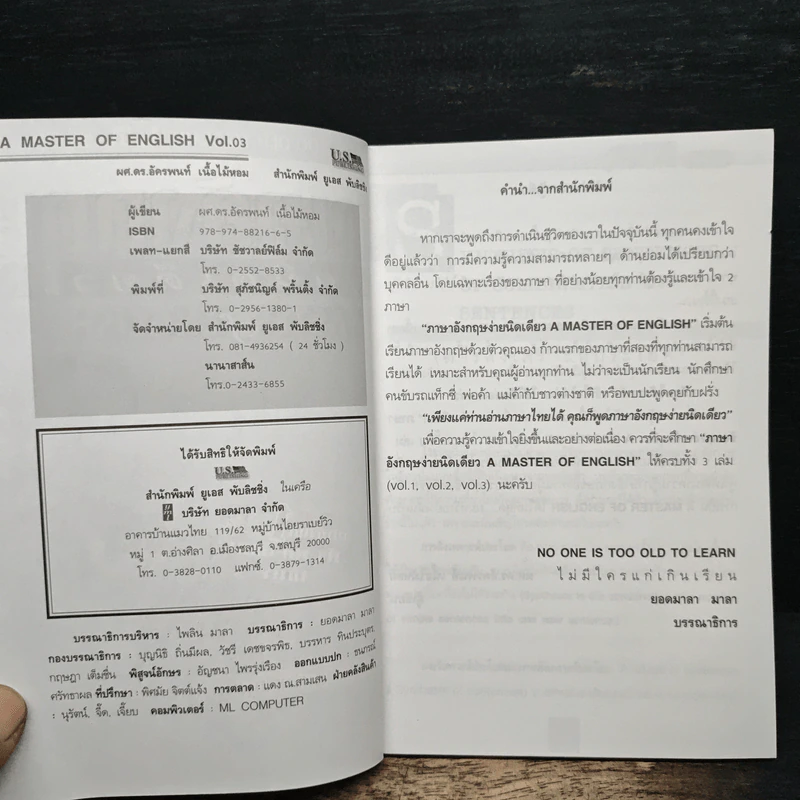 A MASTER OF ENGLISH Vol.03
ผศ.ดร.อัครพนท์ เนื้อไม้หอม สำนักพิมพ์ ยูเอส พับลิชชิ่ง
U.S.
ผู้เขียน ผศ.ดร.อัครพนท์ เนื้อไม้หอม
ISBN 978-974-88216-6-5
เพลท-แยกสี บริษัท ชัชวาลย์ฟิล์ม จำกัด
โทร. 0-2552-8533
พิมพ์ที่ บริษัท สุภัชนิญค์ พริ้นติ้ง จำกัด
โทร. 0-2956-1380-1
จัดจำหน่ายโดย สำนักพิมพ์ ยูเอส พับลิชชิ่ง
โทร. 081-4936254 ( 24 ชั่วโมง )
นานาสาส์น
โทร.0-2433-6855
ได้รับสิทธิให้จัดพิมพ์
U.S.
สำนักพิมพ์ ยูเอส พับลิชชิ่ง ในเครือ
บริษัท ยอดมาลา จำกัด
อาคารบ้านแมวไทย 119/62 หมู่บ้านไอยราเบย์วิว
หมู่ 1 ต.อ่างศิลา อ.เมืองชลบุรี จ.ชลบุรี 20000
โทร. 0-3828-0110 แฟกซ์. 0-3879-1314
บรรณาธิการบริหาร : ไพลิน มาลา บรรณาธิการ : ยอดมาลา มาลา
กองบรรณาธิการ : บุญนิธิ ถิ่นมีผล, วัชรี เดชขจรพิธ, บรรหาร หินประบุตร,
กฤษฎา เต็มชื่น พิสูจน์อักษร : อัญชนา ไพรรุ่งเรือง ออกแบบปก : ธนภรณ์
ศรัทธาผล ที่ปรึกษา : พิศมัย จิตต์แจ้ง การตลาด : แดง ณ.สามเสน ฝ่ายคลังสินค้า
: นุรัตน์, จี๊ด, เจี๊ยบ คอมพิวเตอร์ : ML COMPUTER
คำนำ...จากสำนักพิมพ์
หากเราจะพูดถึงการดำเนินชีวิตของเราในปัจจุบันนี้ ทุกคนคงเข้าใจ
ดีอยู่แล้วว่า การมีความรู้ความสามารถหลายๆ ด้านย่อมได้เปรียบกว่า
บุคคลอื่น โดยเฉพาะเรื่องของภาษา ที่อย่างน้อยทุกท่านต้องรู้และเข้าใจ 2
ภาษา
"ภาษาอังกฤษง่ายนิดเดียว A MASTER OF ENGLISH" เริ่มต้น
เรียนภาษาอังกฤษด้วยตัวคุณเอง ก้าวแรกของภาษาที่สองที่ทุกท่านสามารถ
เรียนได้ เหมาะสำหรับคุณผู้อ่านทุกท่าน ไม่ว่าจะเป็นนักเรียน นักศึกษา
คนขับรถแท็กซี่ พ่อค้า แม่ค้ากับชาวต่างชาติ หรือพบปะพูดคุยกับฝรั่ง
"เพียงแค่ท่านอ่านภาษาไทยได้ คุณก็พูดภาษาอังกฤษง่ายนิดเดียว"
เพื่อความรู้ความเข้าใจยิ่งขึ้นและอย่างต่อเนื่อง ควรที่จะศึกษา "ภาษา
อังกฤษง่ายนิดเดียว A MASTER OF ENGLISH" ให้ครบทั้ง 3 เล่ม
(vol.1, vol.2, vol.3) นะครับ
NO ONE IS TOO OLD TO LEARN
ไม่มีใครแก่เกินเรียน
ยอดมาลา มาลา
บรรณาธิการ